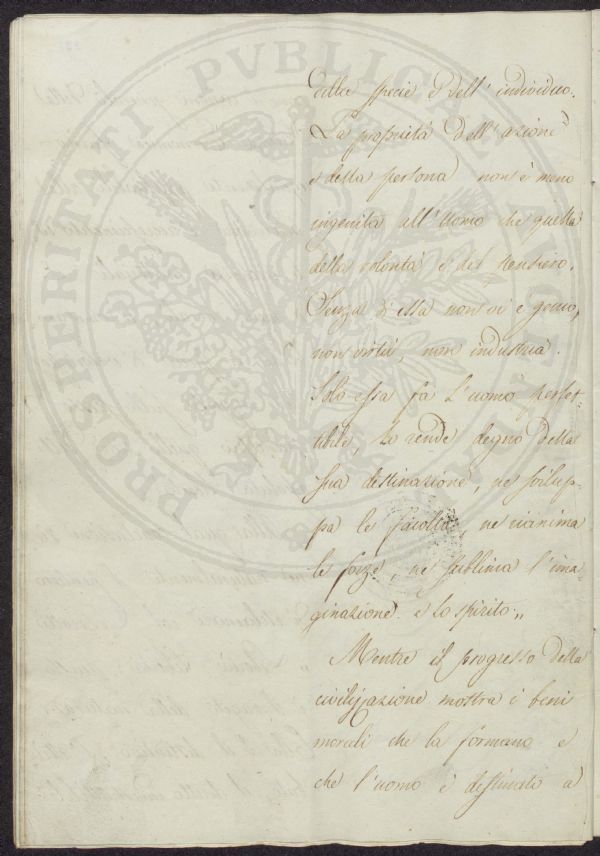 PROSPERITATI PVBLICAE AVGENDAE
della specie e dell' individuo.
La proprietá dell'azione
e della persona non è meno
ingenita all'Uomo che quella
della volontà e del pensiero.
Senza di essa non vi e genio,
non virtú, non industria.
Solo essa fa l'uomo perfet-
tibile, lo rende degno della
sua destinazione, ne svilup-
pa le facoltà, ne rianima
le forze, ne sublima l'ima-
ginazione e lo spirito „
Mentre il progresso della
civilizzazione mostra i beni
morali che la formano e
che l'uomo è destinato a